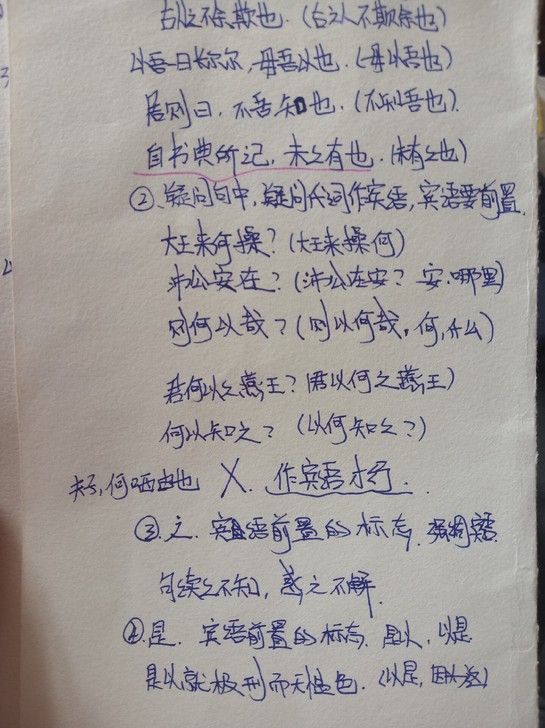 古人之不余欺也.(古之人不欺余也)
以吾一日长尔,毋吾以也.(毋以吾也)
居则曰,不吾知也.(不知吾也).
自书典所记,未之有也.(未有之也)
②.疑问句中,疑问代词作宾语,宾语要前置.
大王来何操?(大王来操何)
沛公安在?(沛公在安? 安.哪里)
则何以哉?(则以何哉,何,什么)
君何以之燕王?(君以何之燕王)
何以知之?(以何知之?)
夫子,何哂由也 X. 作宾语才行.
③.之.宾语前置的标志.强调宾语
句读之不知,惑之不解.
④.是.宾语前置的标志.是以,以是
是以就极刑而无愠色.(以是,因此)